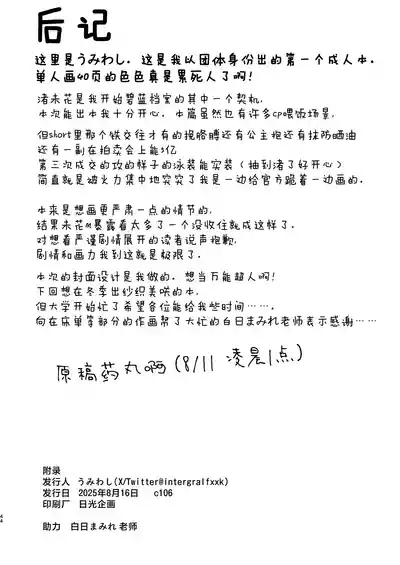 后记
这里是うみわし. 这是我以团体身份出的第一个成人本.
单人画40页的色色真是累死人了啊!
渚未花是我开始碧蓝档案的其中一个契机,
本次能出本我十分开心. 本篇虽然也有许多cp喂饭场景,
但short里那个铁交往才有的挽胳膊还有公主抱还有抹防晒油
还有一副在拍卖会上能3亿
第三次成交的攻的样子的泳装能实装(抽到渚了好开心)
简直就是被火力集中地突突了我是一边给官方跪着一边画的.
本来是想画更严肃一点的情节的,
结果未花M暴露着太多了一个没收住就成这样了.
对想看严谨剧情展开的读者说声抱歉,
剧情和画力我到这就是极限了.
本次的封面设计是我做的. 想当万能超人啊!
下回想在冬季出纱织美咲的本,
但大学开始忙了希望各位能给我些时间……,
向在床单等部分的作画帮了大忙的白日まみれ老师表示感谢……
原稿药丸啊(8/11 凌晨1点)
附录
发行人 うみわし(X/Twitter@intergralfxxk)
发行日 2025年8月16日 c106
印刷厂 日光企画
助力 白日まみれ 老师
44